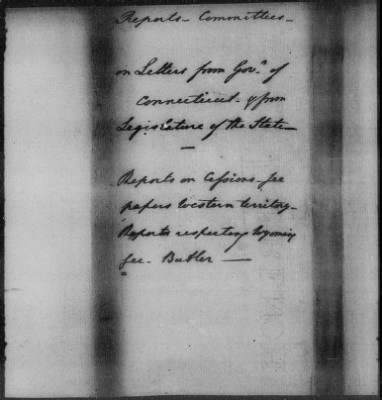 Reports - Committees -
on Letters from Govr. of
Connecticut - & from
Legislature of the State -
Reports on Cessions - see
papers Western territory -
Reports respecting Wyoming
see - Butler -